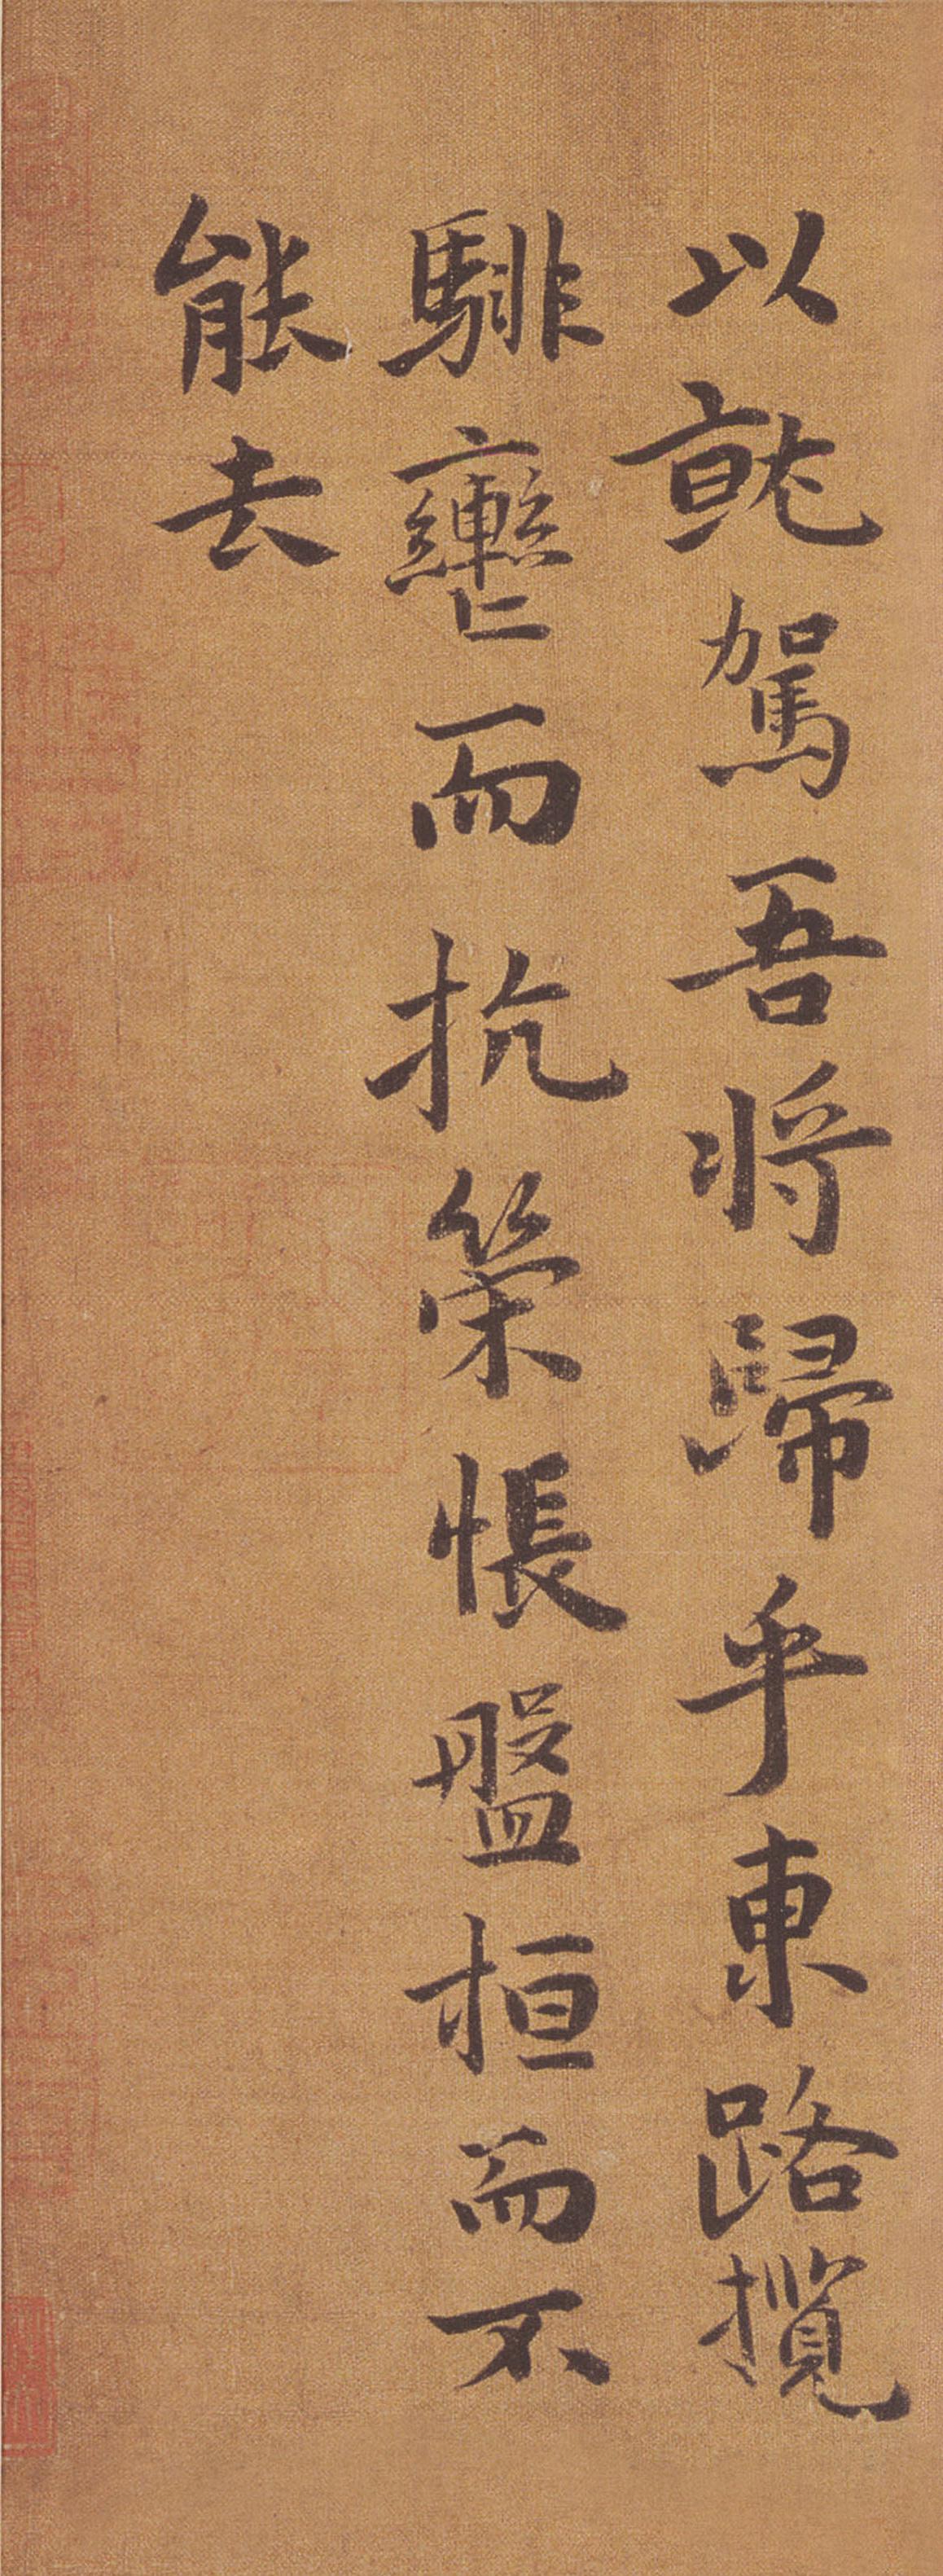 以就駕吾将歸乎東路攬
騑轡而抗策悵盤桓而不
能去